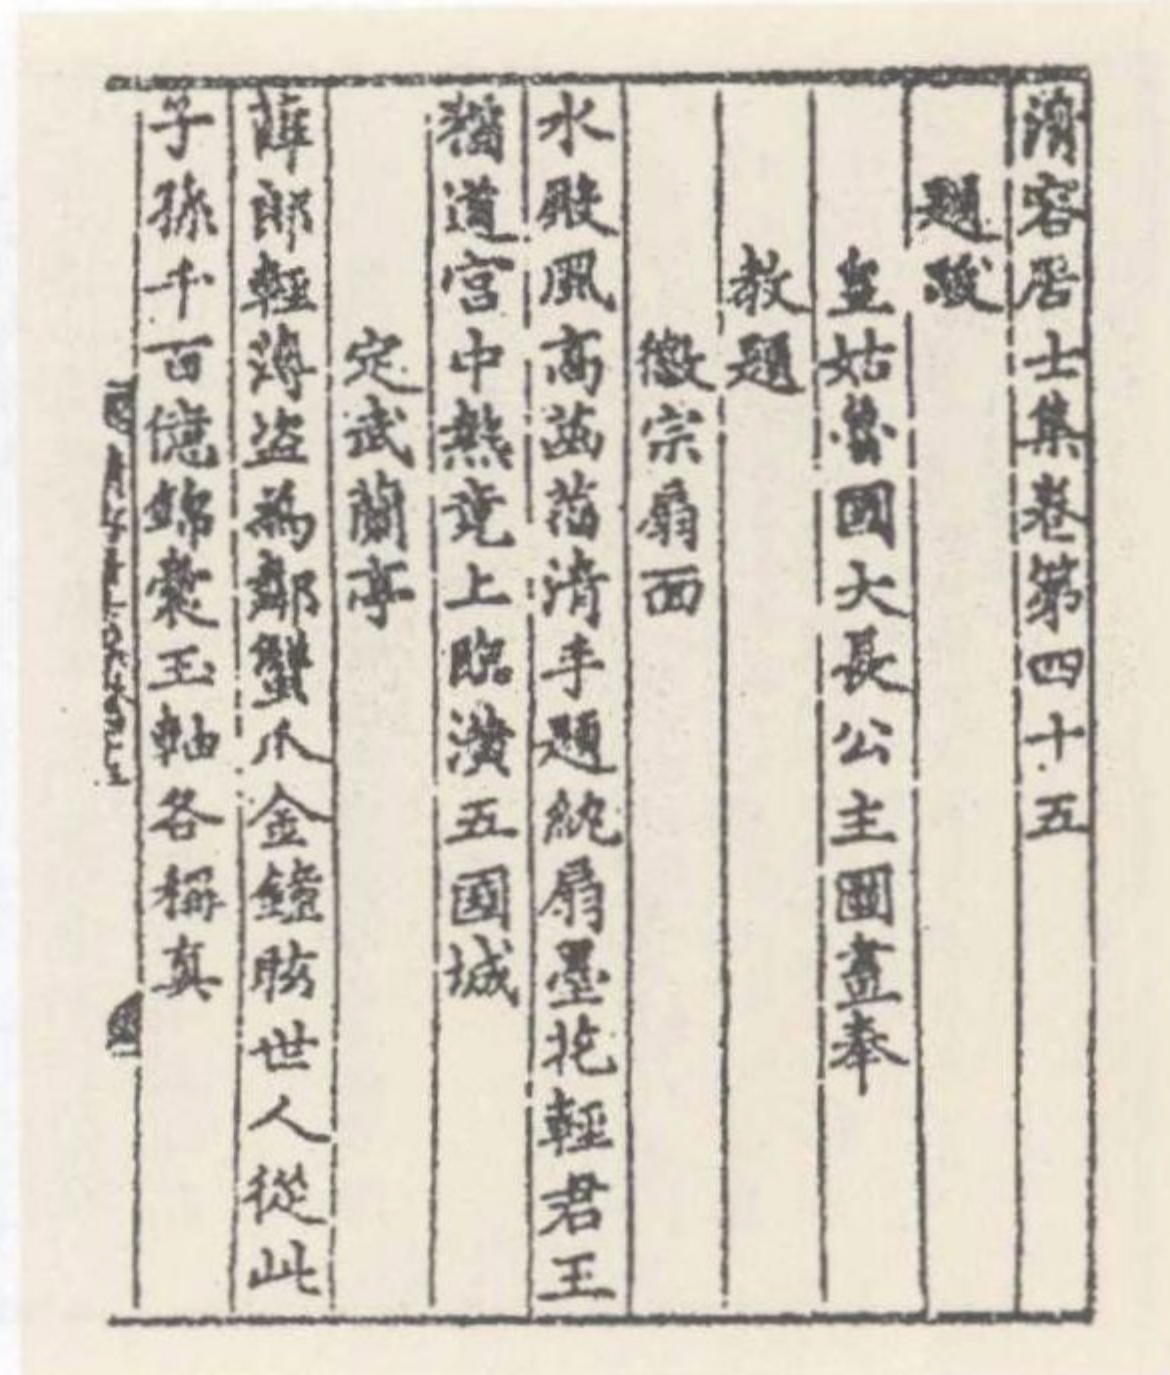 清容居士集卷第四十五
題跋
皇姑魯國大長公主圖畫奉
教題
徽宗扇面
水殿風髙菡萏清手題紈扇墨花輕君王
猶道宮中熱竟上臨潢五國城
定武蘭亭
薛郎輕薄盗為鄰蟹爪金眩世人從此
子孫千百億錦囊玉軸各稱真